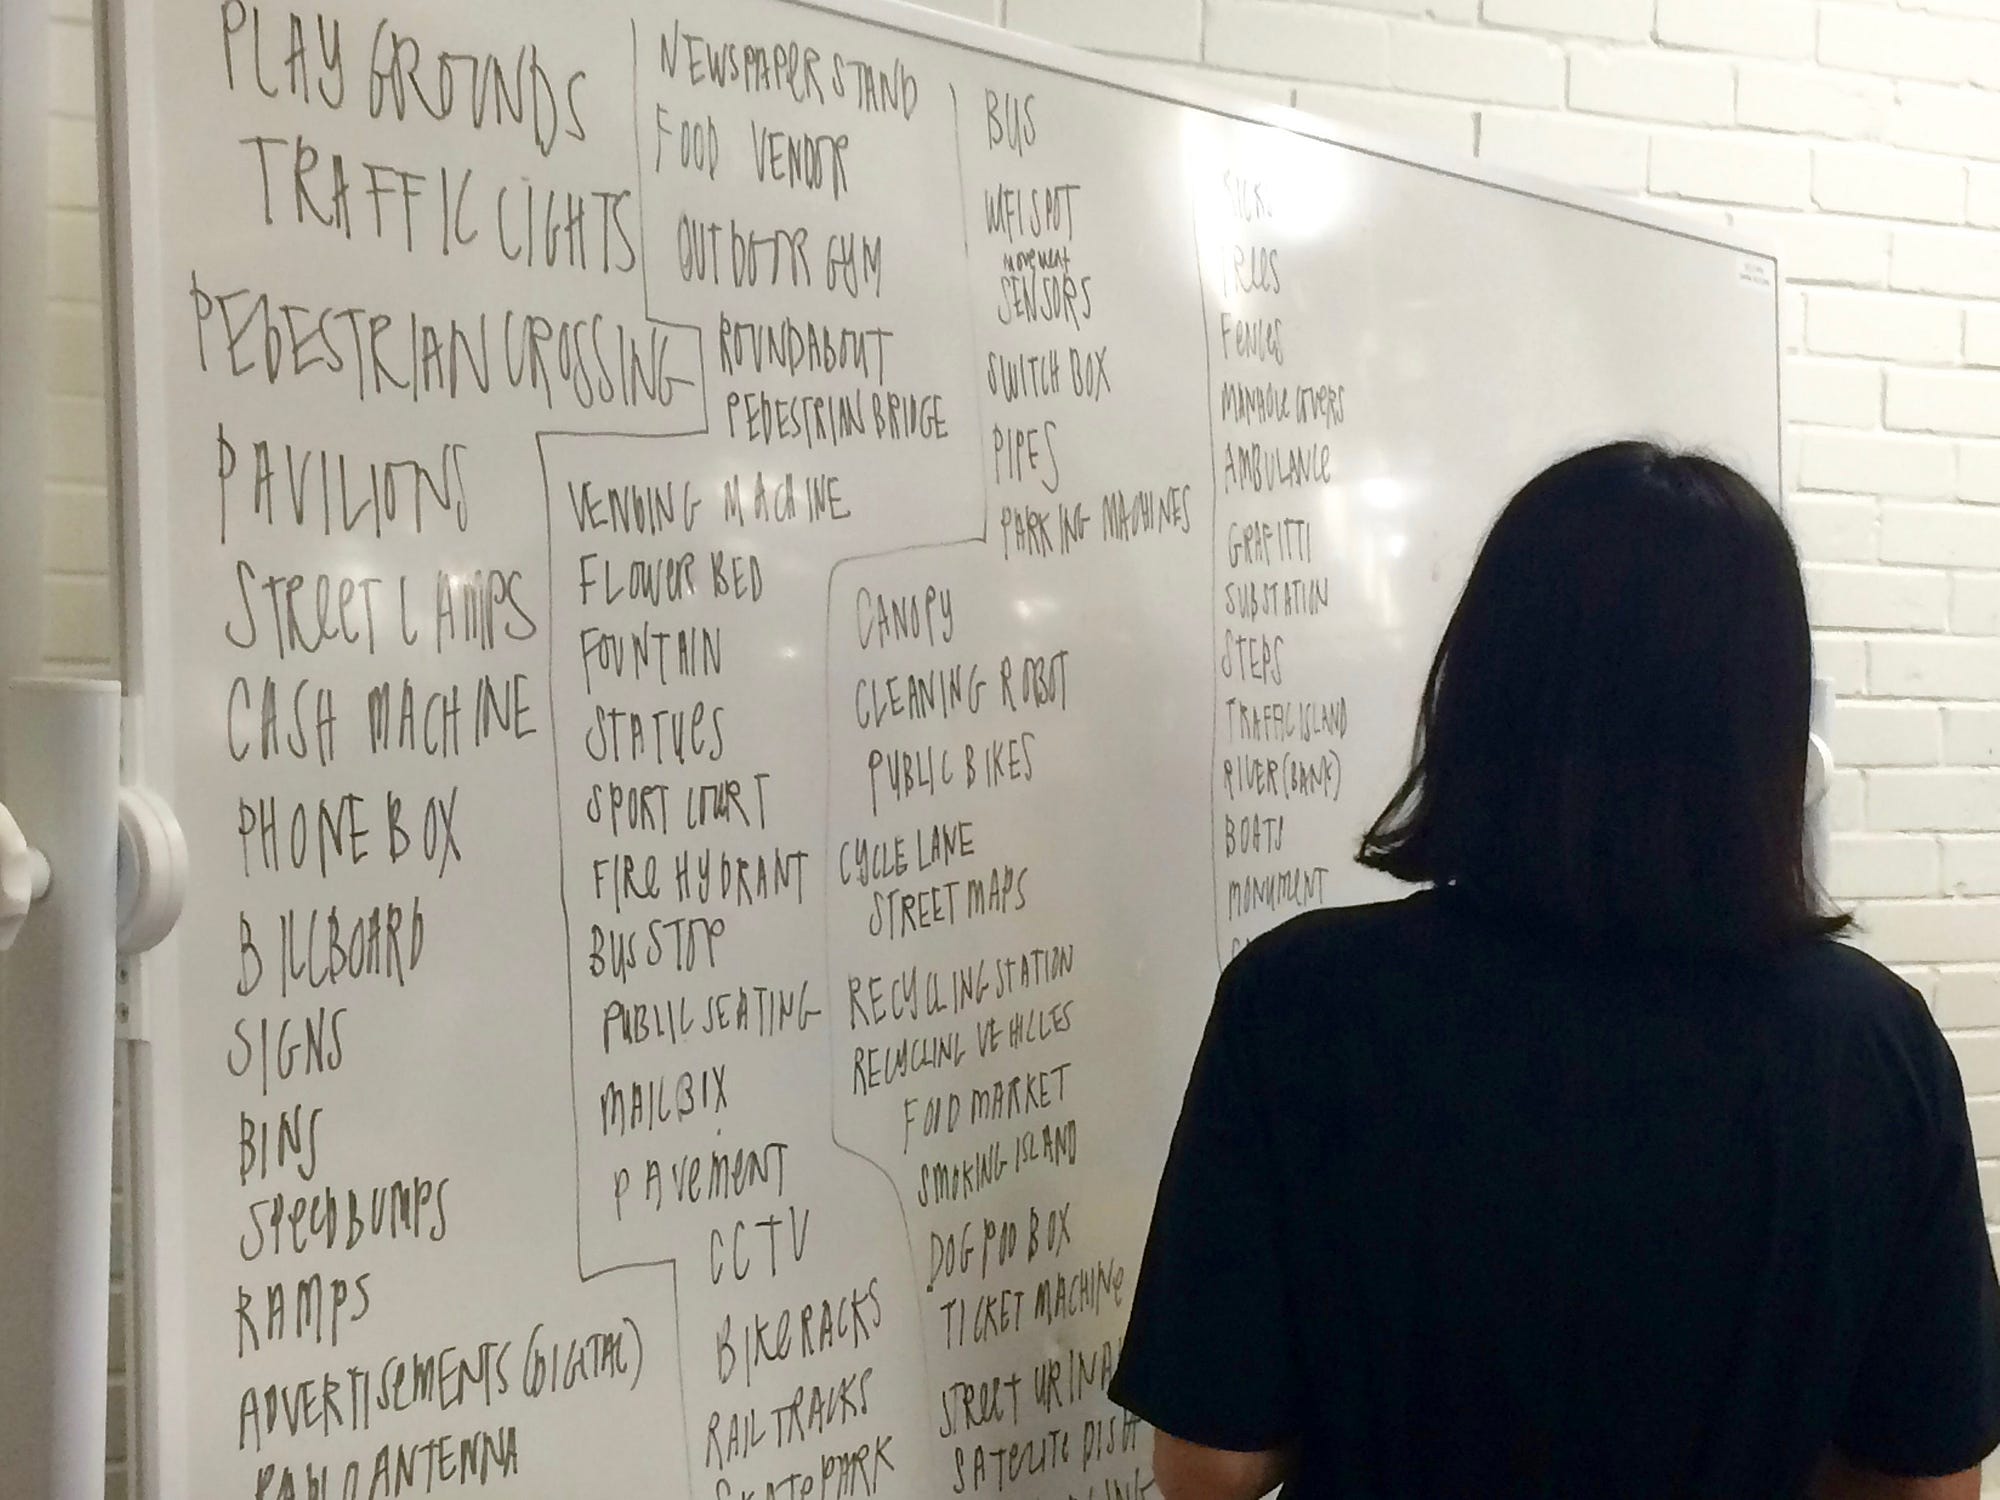 PLAY GROUNDS
TRAFFIC LIGHTS
PEDESTRIAN CROSSING
PAVILIONS
STREET LAMPS
CASH MACHINE
PHONE BOX
BILLBOARD
SIGNS
BINS
SPEEDBUMPS
RAMPS
ADVERTISEMENTS (DIGITAL)
ANTENNA
NEWSPAPER STAND
FOOD VENDOR
OUTDOOR GYM
ROUNDABOUT
PEDESTRIAN BRIDGE
VENDING MACHINE
FLOWER BED
FOUNTAIN
STATUES
SPORT COURT
FIRE HYDRANT
BUS STOP
PUBLIC SEATING
MAILBOX
PAVEMENT
CCTV
BIKE RACKS
RAIL TRACKS
SKATEPARK
BUS
WIFI SPOT
movement
SENSORS
SWITCH BOX
PIPES
PARKING MACHINES
CANOPY
CLEANING ROBOT
PUBLIC BIKES
CYCLE LANE
STREET MAPS
RECYCLING STATION
RECYCLING VEHICLES
FOOD MARKET
SMOKING ISLAND
DOG POO BOX
TICKET MACHINE
STREET URINA
SATELITE DISH
TREES
FENCES
MANHOLE COVERS
AMBULANCE
GRAFITTI
SUBSTATION
STEPS
TRAFFIC ISLAND
RIVER (BANK)
BOATS
MONUMENT